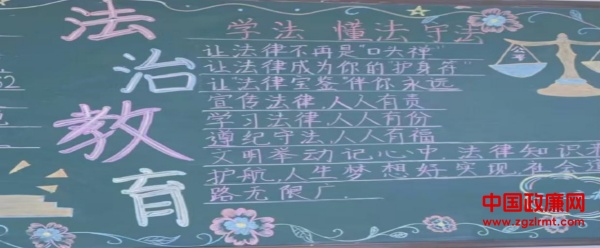 法
治
教
育
学法 懂法 守法
让法律不再是"口头样"
让法律成为你的"护身符"
让法律宝鉴"伴你永远
宣传法律,人人有责
学习法律人人有份
遵纪守法,人人有福
文明举动记心中 法律知识
护航,人生梦想好实现社会道
路无限广.
中国政廉网
www.zgzlrmt.com